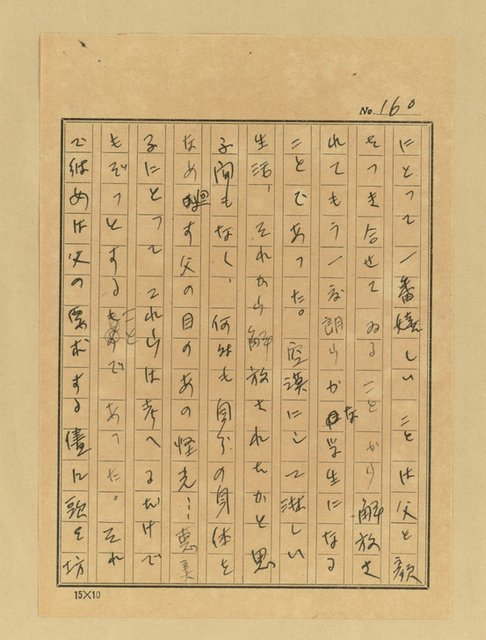 No. 160
にとって一番嬉しいことは父と顔
をつき合せてゐることから解放さ
れてもう一度朗らかな学生になる
ことであった。空漠にして淋しい
生活、それから解放されたかと思
ふ間もなく、何時も自分の身体を
なめ廻す父の目のあの怪光…恵美
子にとってこれらは考へるだけで
もぞっとすることであった。それ
で彼女は父の要求する儘に頭を坊
15×10